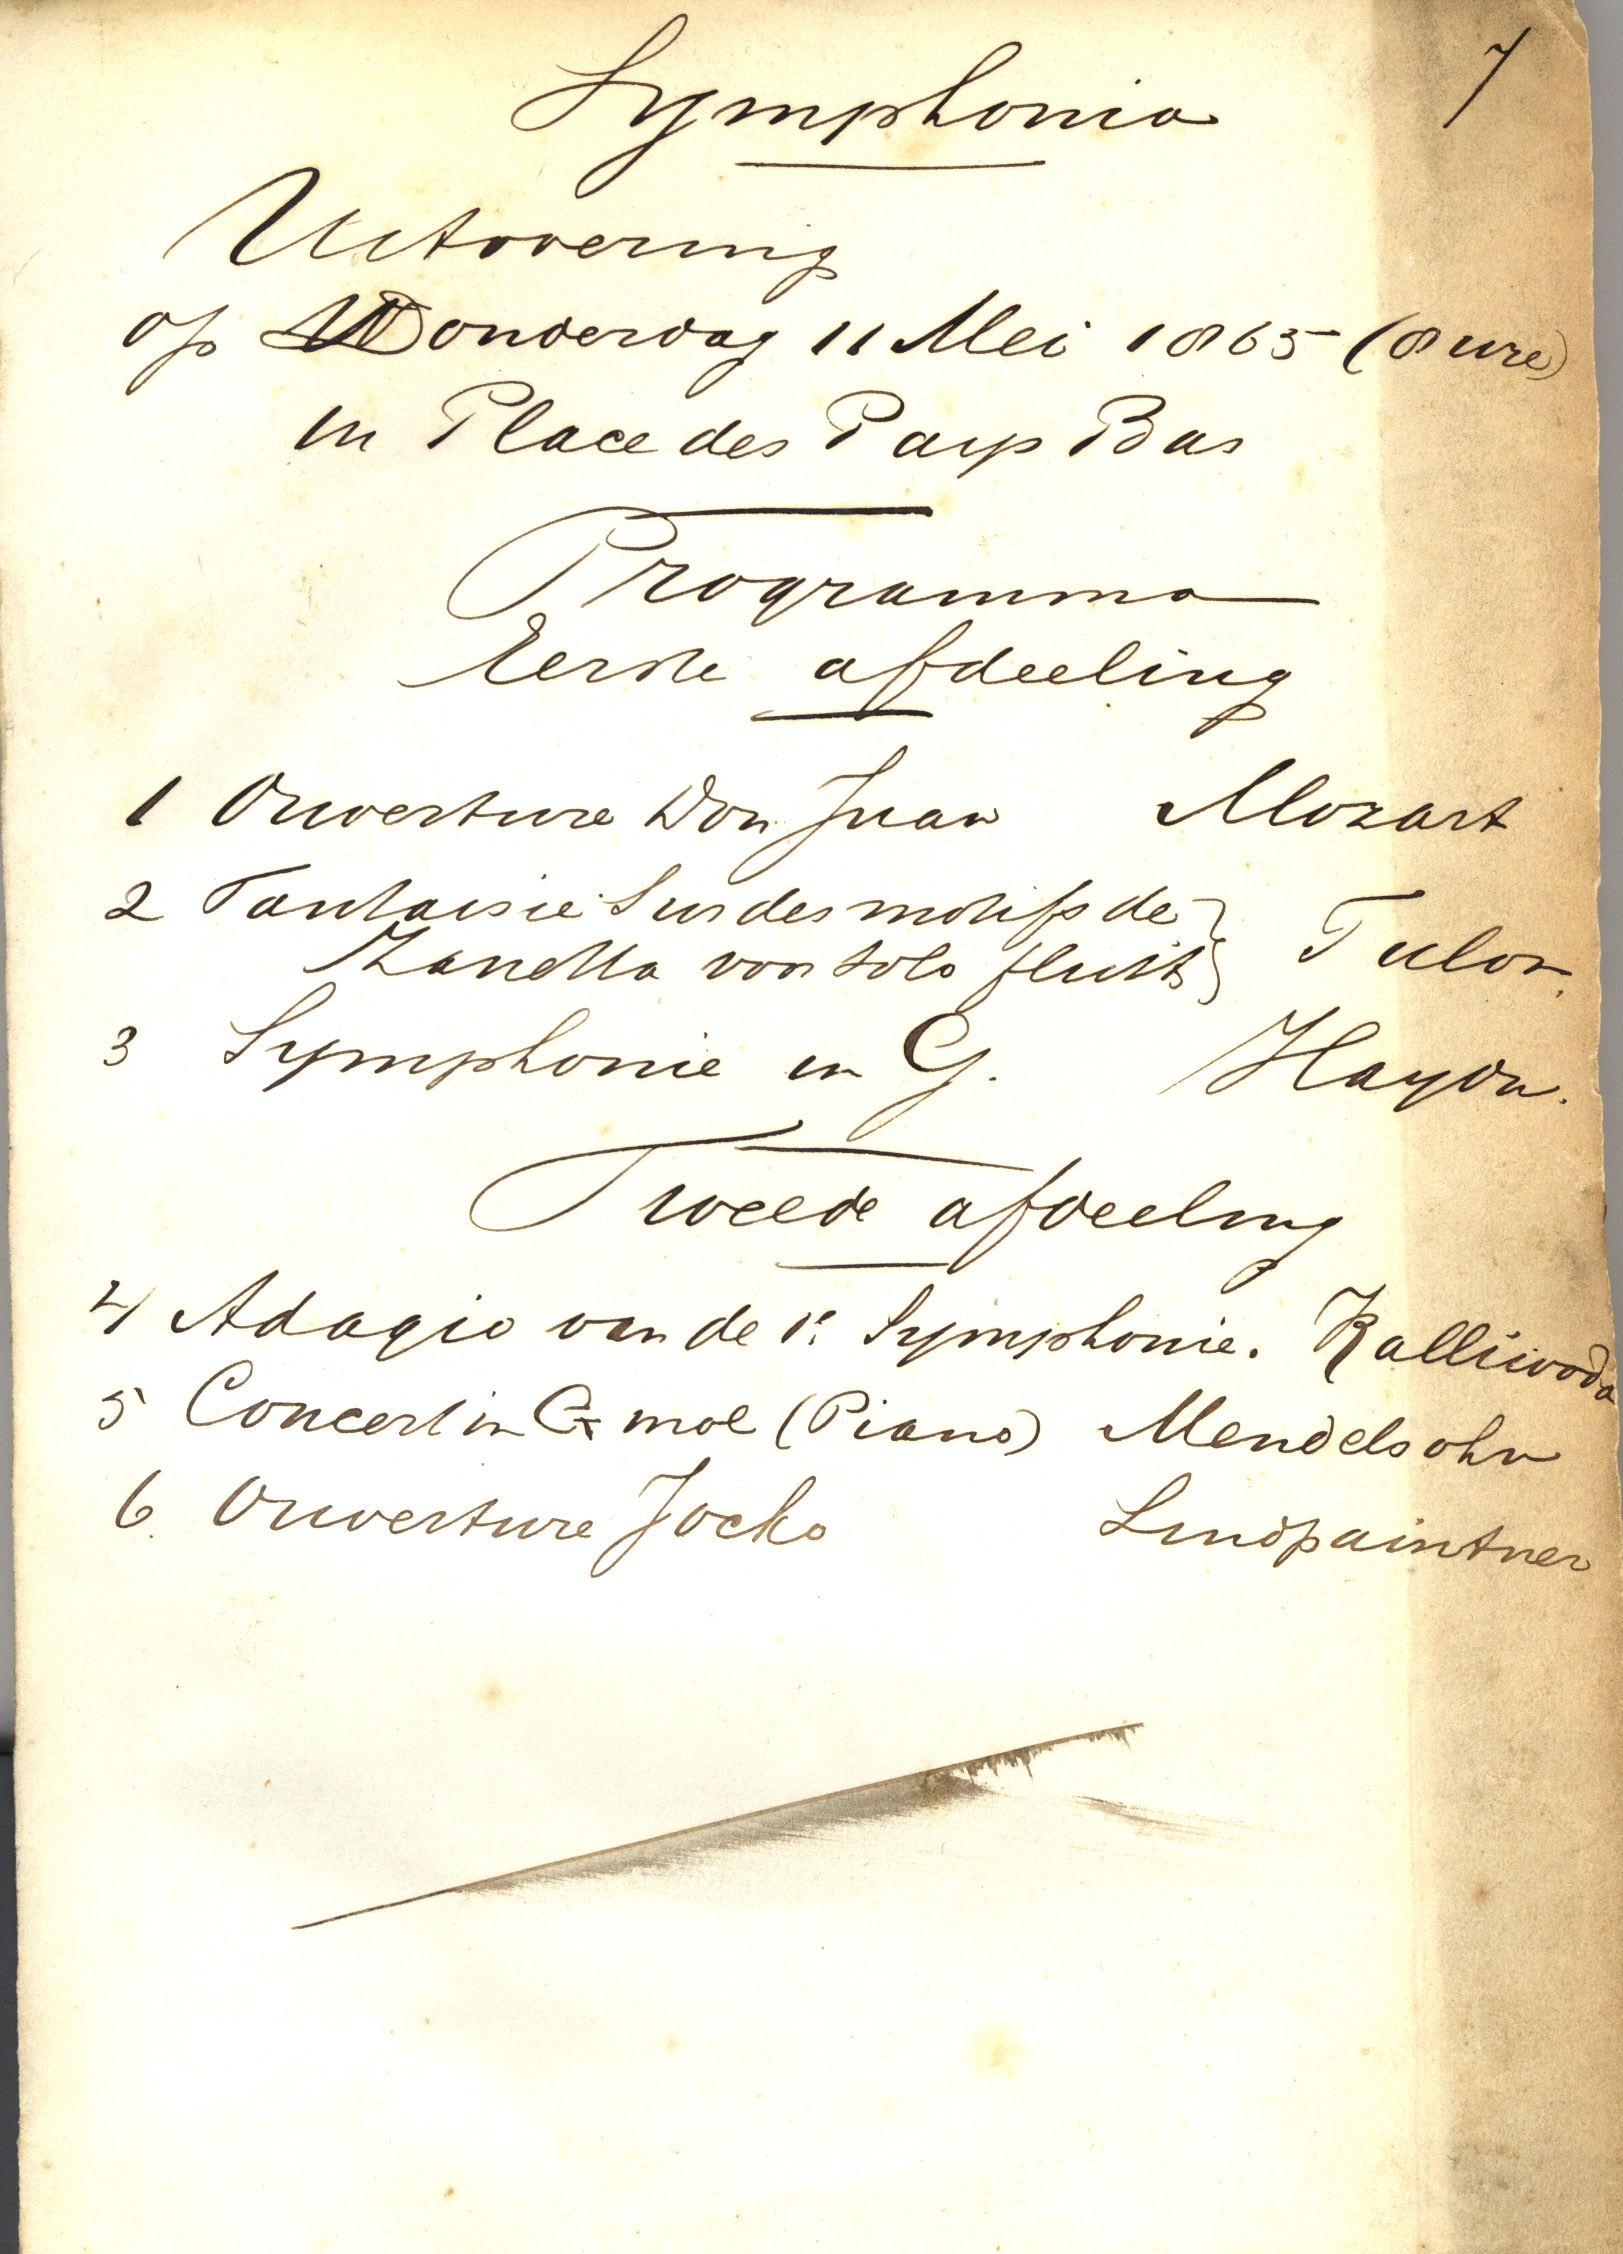 7
Symphonia
Uitvoering
op Donderdag 11 Mei 1865 (8 ure)
in Place des Pays Bas
Programma
Eerste afdeeling
1 Ouverture Don Juan Mozart
2 Fantaisie sur des motifs de
Zanetta voor solo fluit Tulou.
3 Symphonie in G. Haydn.
Tweede afdeeling
4 Adagio van de 1e Symphonie. Kalliwoda
5 Concert in G mol (Piano) Mendelsohn
6. Ouverture Jocko Lindpaintner